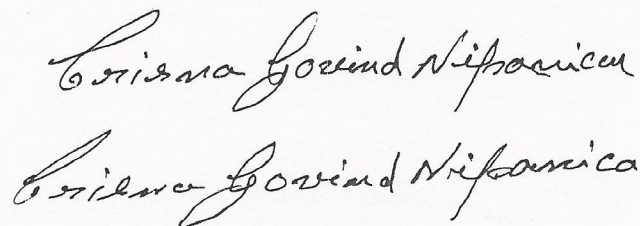 Crisna Govind Nipanicar
Crisna Govind Nipanica